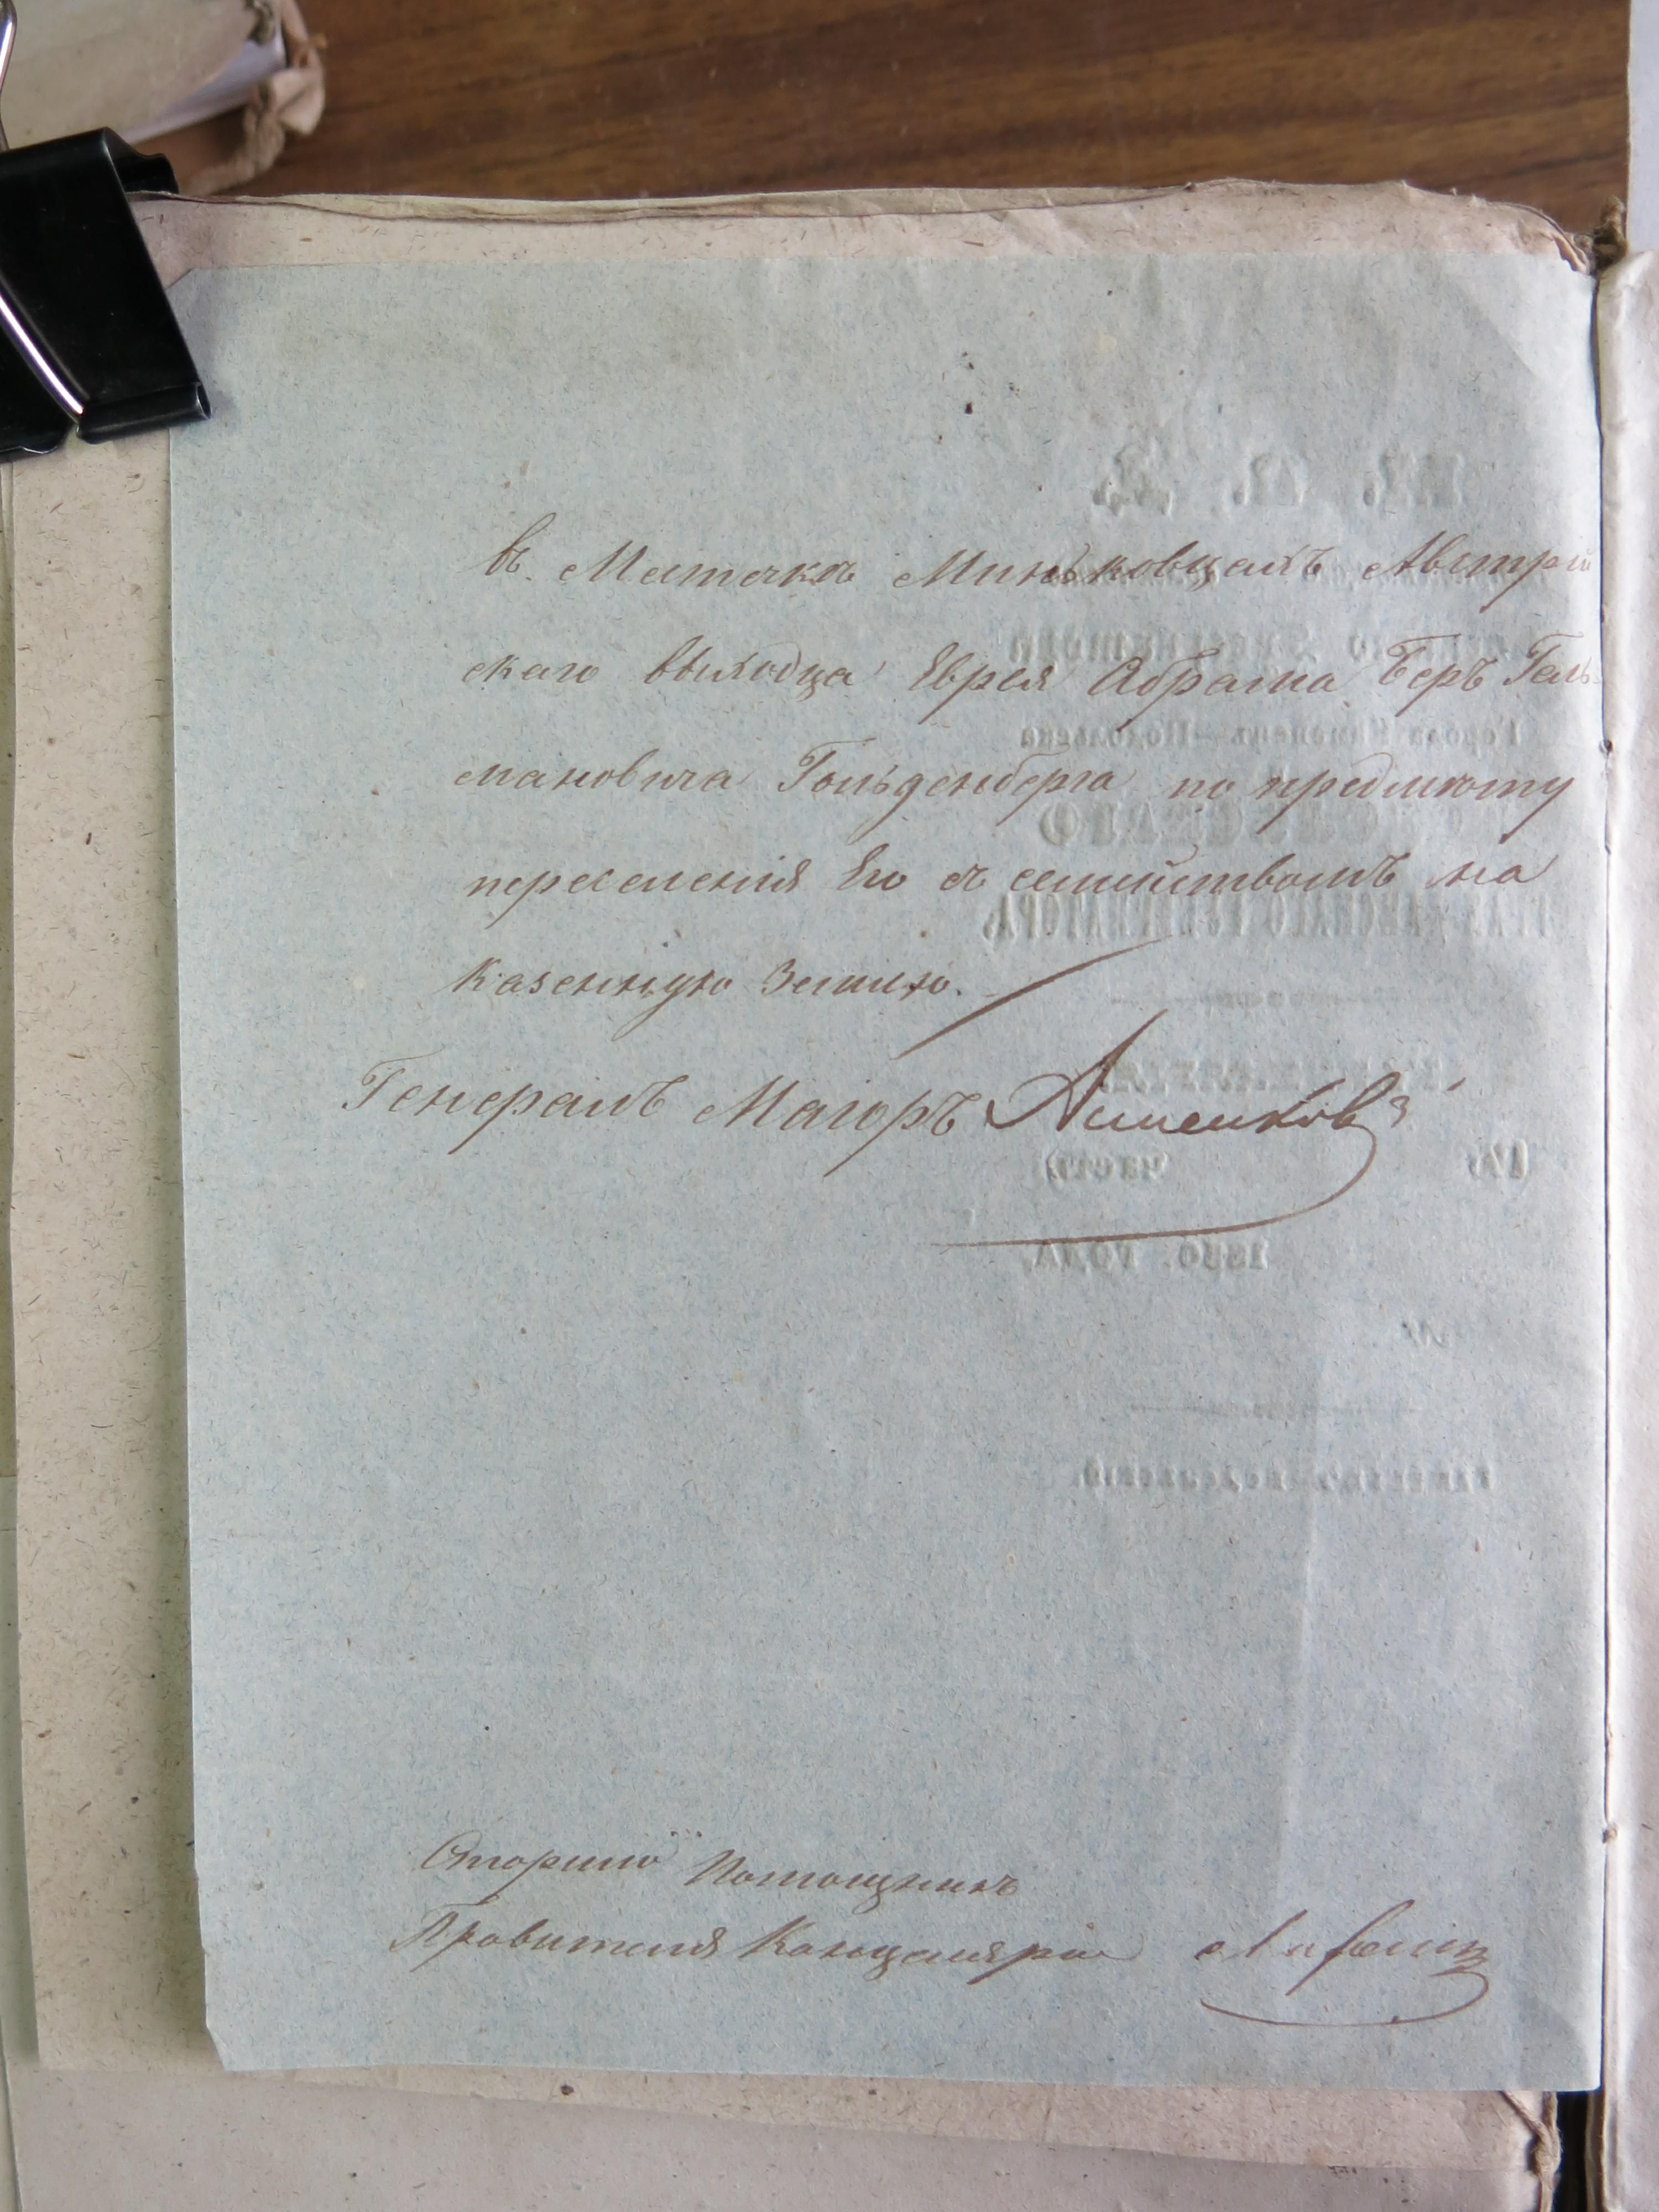 въ Местечкѣ Миньковцахъ Австрій
скаго выходца Еврея Абрама Беръ Гель
мановича Гольденберга по предмѣту
переселенія Его съ семействомъ на
казенную Землю.
Генералъ Маіоръ Анненковъ
Старшій Помощникъ
Правителя Канцеляріи